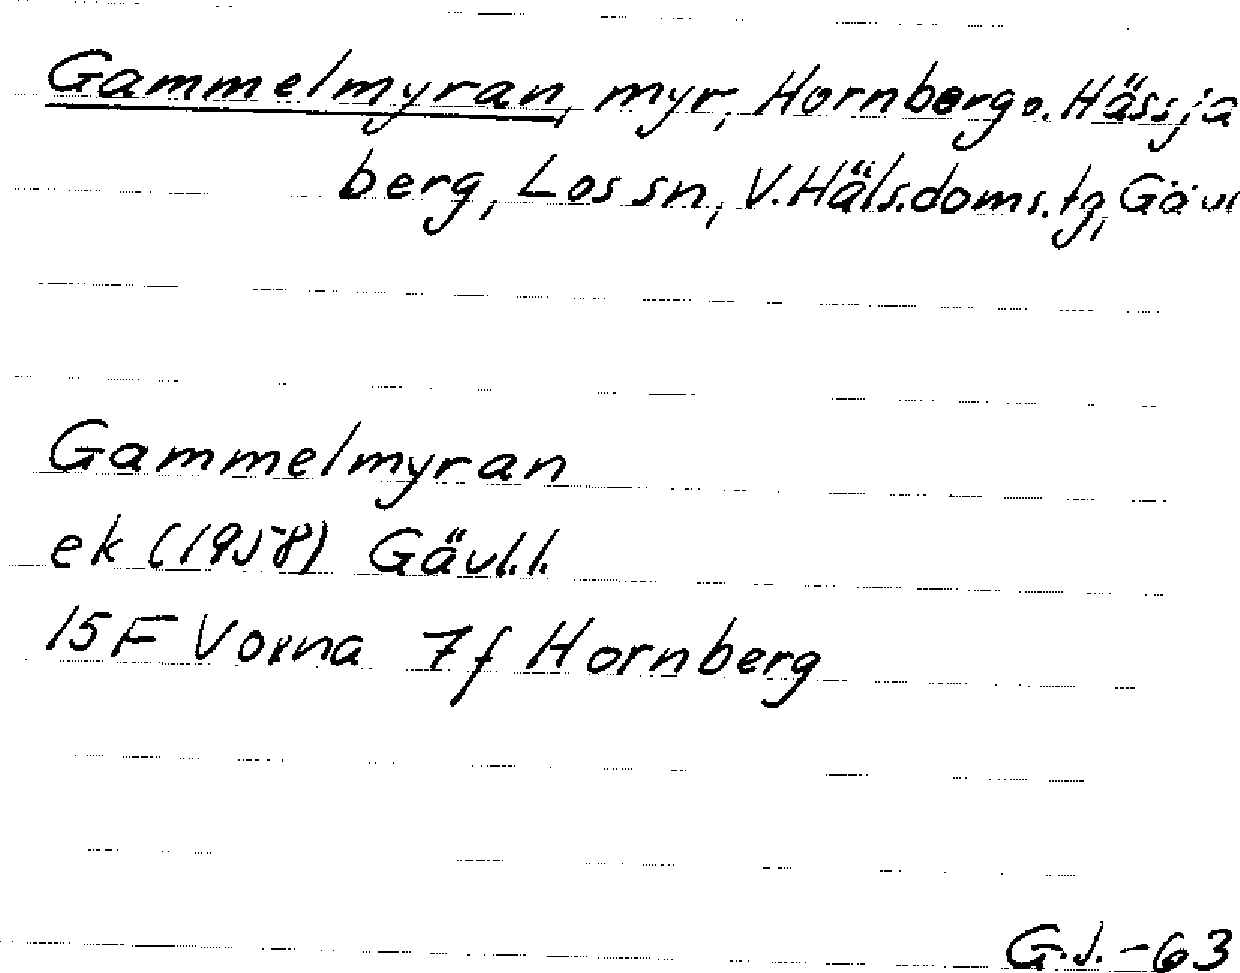 Gammelmyran, myr, Hornberg o. Hässja
berg, Los sn, V. Häls. doms. tg, Gävl
Gammelmyran
ek (1958) Gävl.l.
15F Voxna 7f Hornberg
G.J. -63